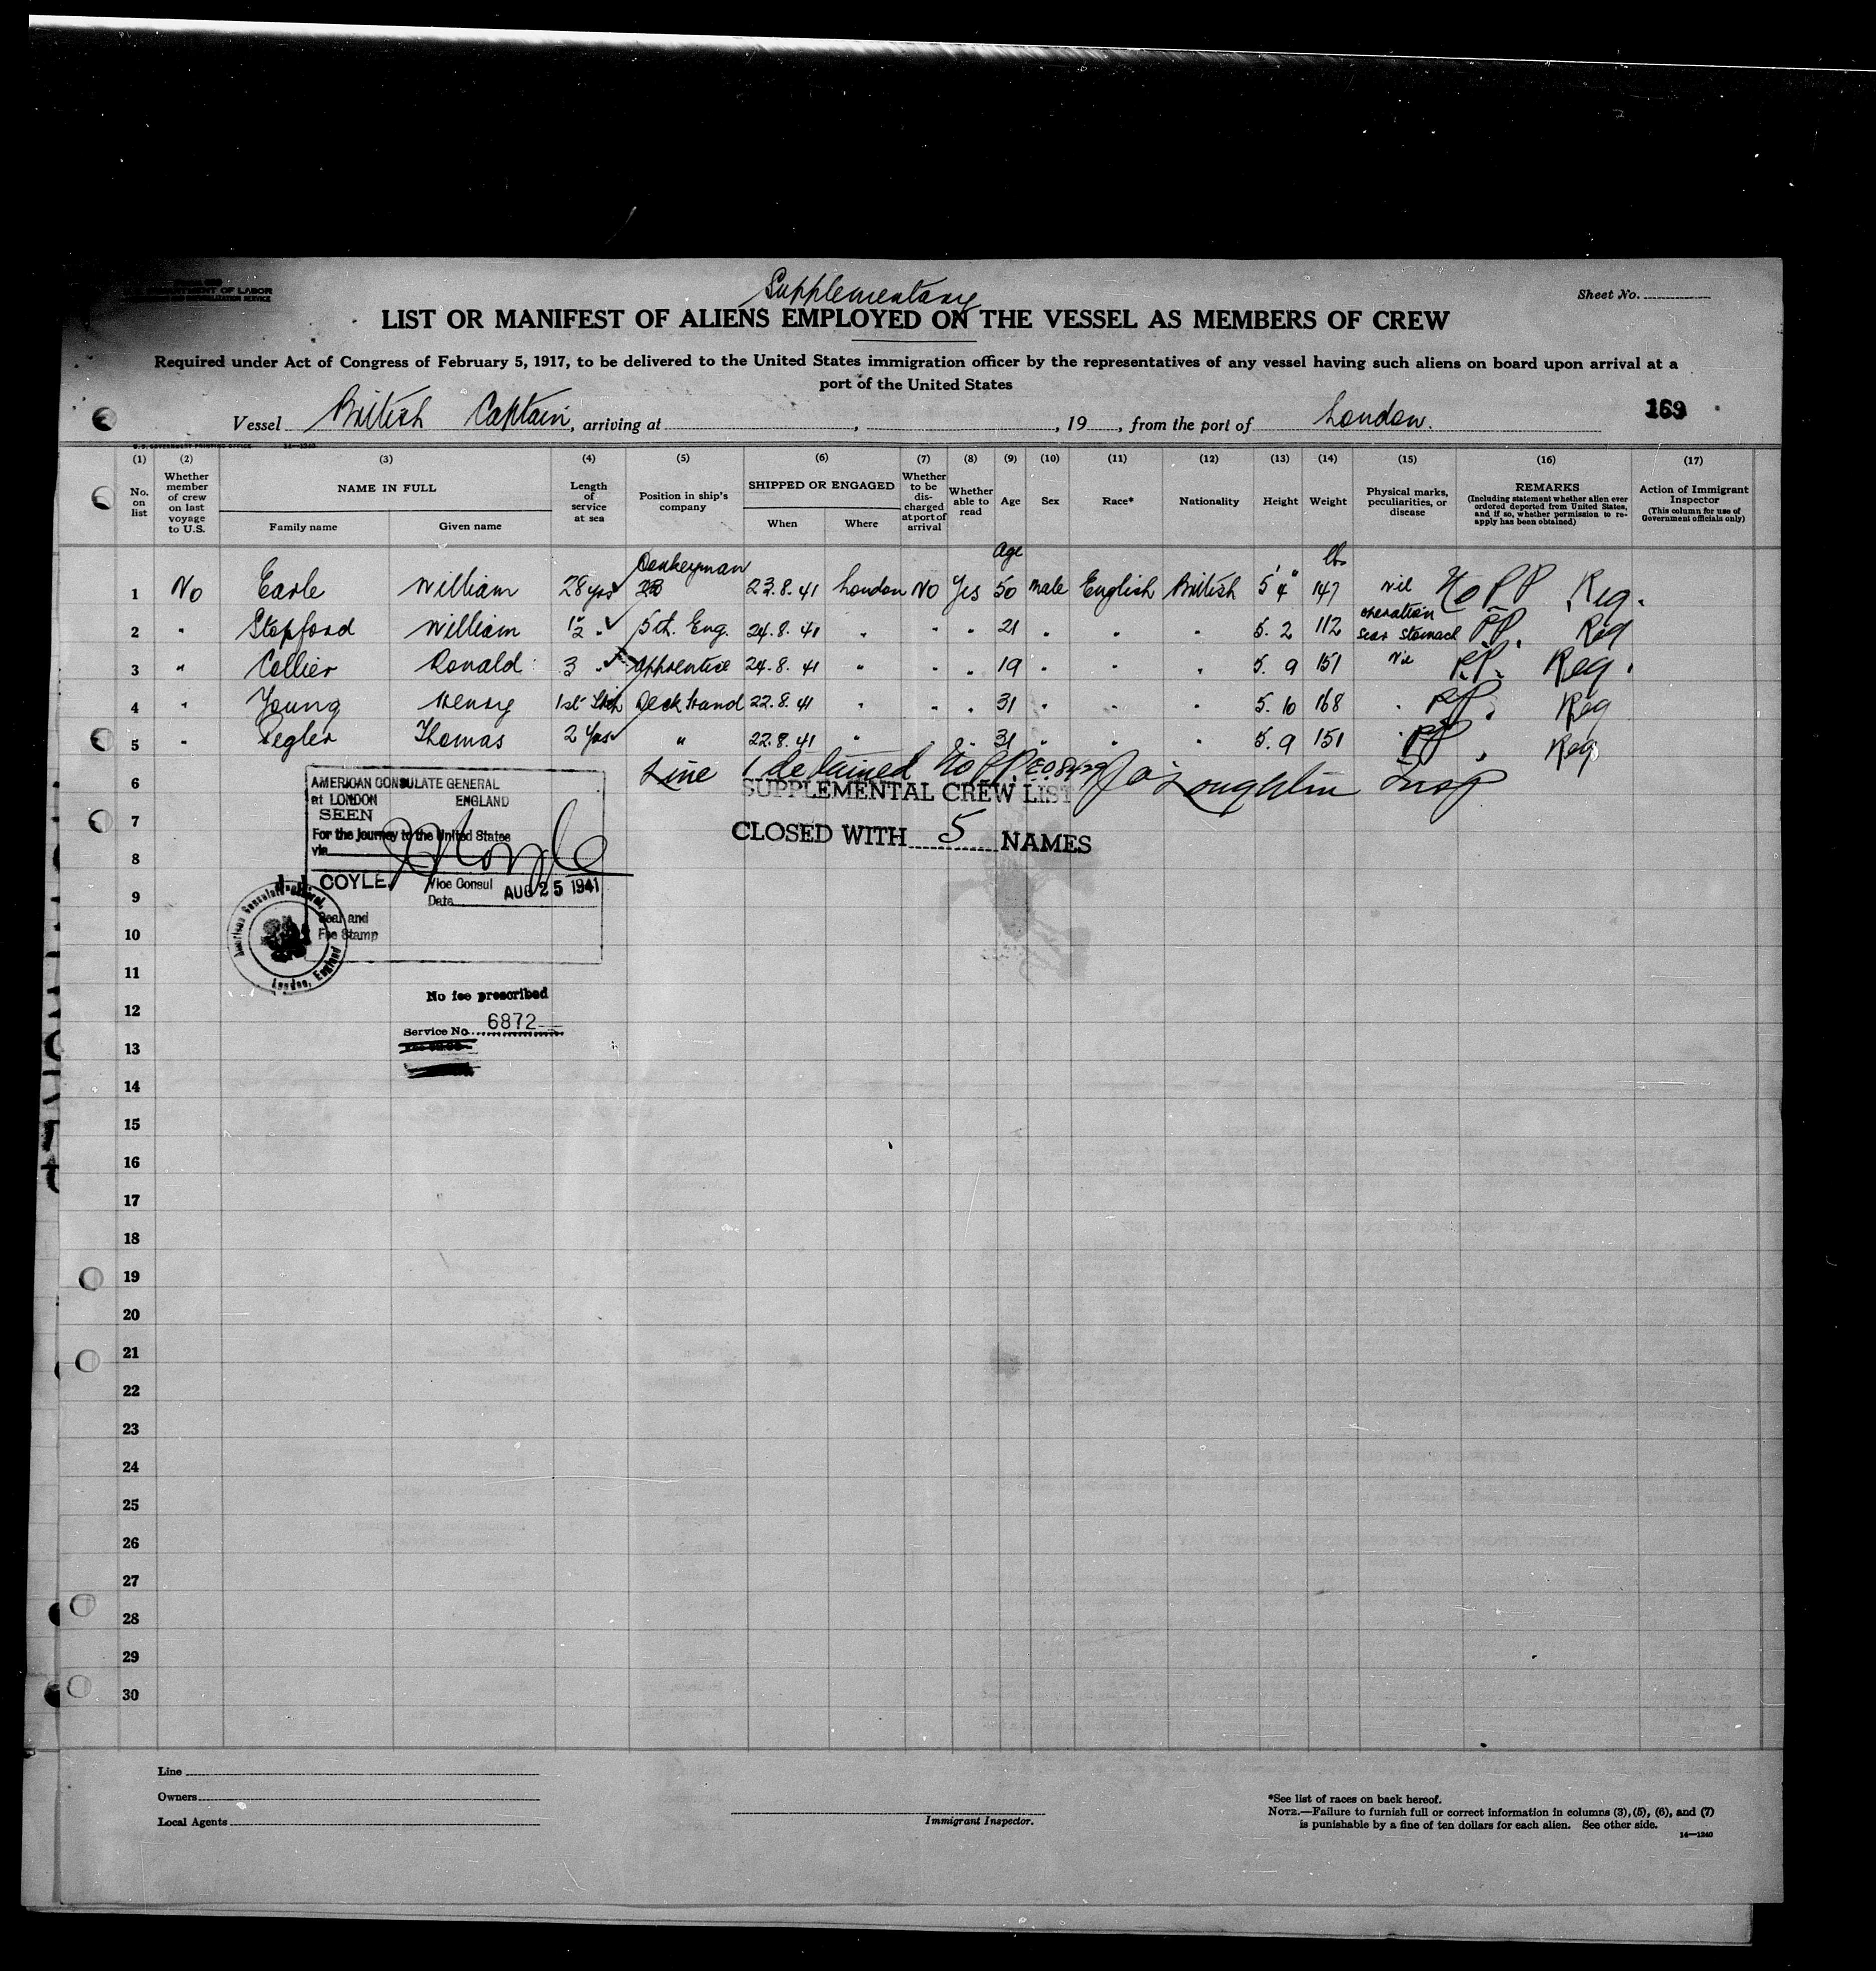 U.S. DEPARTMENT OF LABOR
Supplementary
Sheet No.
LIST OR MANIFEST OF ALIENS EMPLOYED ON THE VESSEL AS MEMBERS OF CREW
Required under Act of Congress of February 5, 1917, to be delivered to the United States immigration officer by the representatives of any vessel having such aliens on board upon arrival at a
port of the United States
Vessel British Captain, arriving at , , 19 , from the port of London.
169
U.S. GOVERNMENT PRINTING OFFICE 14—1240
(1) (2) (3) (4) (5) (6) (7) (8) (9) (10) (11) (12) (13) (14) (15) (16) (17)
No. on list
Whether member of crew on last voyage to U.S.
NAME IN FULL
Family name Given name
Length of service at sea
Position in ship's company
SHIPPED OR ENGAGED
When Where
Whether to be discharged at port of arrival
Whether able to read
Age
Sex
Race*
Nationality
Height
Weight
Physical marks, peculiarities, or disease
REMARKS
(Including statement whether alien ever ordered deported from United States, and if so, whether permission to re-apply has been obtained)
Action of Immigrant Inspector
(This column for use of Government officials only)
Age lbs
Donkeyman
1 No Earle William 28 yrs 23.8.41 London No Yes 50 Male English British 5' 4" 147 Nil No PP Reg.
2 " Stopford William 1½ " 5th. Eng. 24.8.41 " " " 21 " " " 5. 2 112 operation scar stomach PP. Reg
3 " Collier Ronald 3 " Apprentice 24.8.41 " " " 19 " " " 5. 9 151 Nil PP. Reg.
4 " Young Henry 1st Trip Deck Hand 22.8.41 " " " 31 " " " 5. 10 168 " PP. Reg
5 " Pegler Thomas 2 Yrs " 22.8.41 " " " 31 " " " 5. 9 151 " PP. Reg
Line 1 detained No PP. E.O. 8429 J O'Loughlin Insp
6
SUPPLEMENTAL CREW LIST
7
CLOSED WITH 5 NAMES
AMERICAN CONSULATE GENERAL
at LONDON ENGLAND
SEEN
For the journey to the United States
via
COYLE, Vice Consul
Date AUG 25 1941
Seal and
Fee Stamp
American Consulate General, London, England
No fee prescribed
Service No. 6872
8
9
10
11
12
13
14
15
16
17
18
19
20
21
22
23
24
25
26
27
28
29
30
Line
Owners
Local Agents
Immigrant Inspector.
*See list of races on back hereof.
NOTE.—Failure to furnish full or correct information in columns (3), (5), (6), and (7)
is punishable by a fine of ten dollars for each alien. See other side.
14—1240